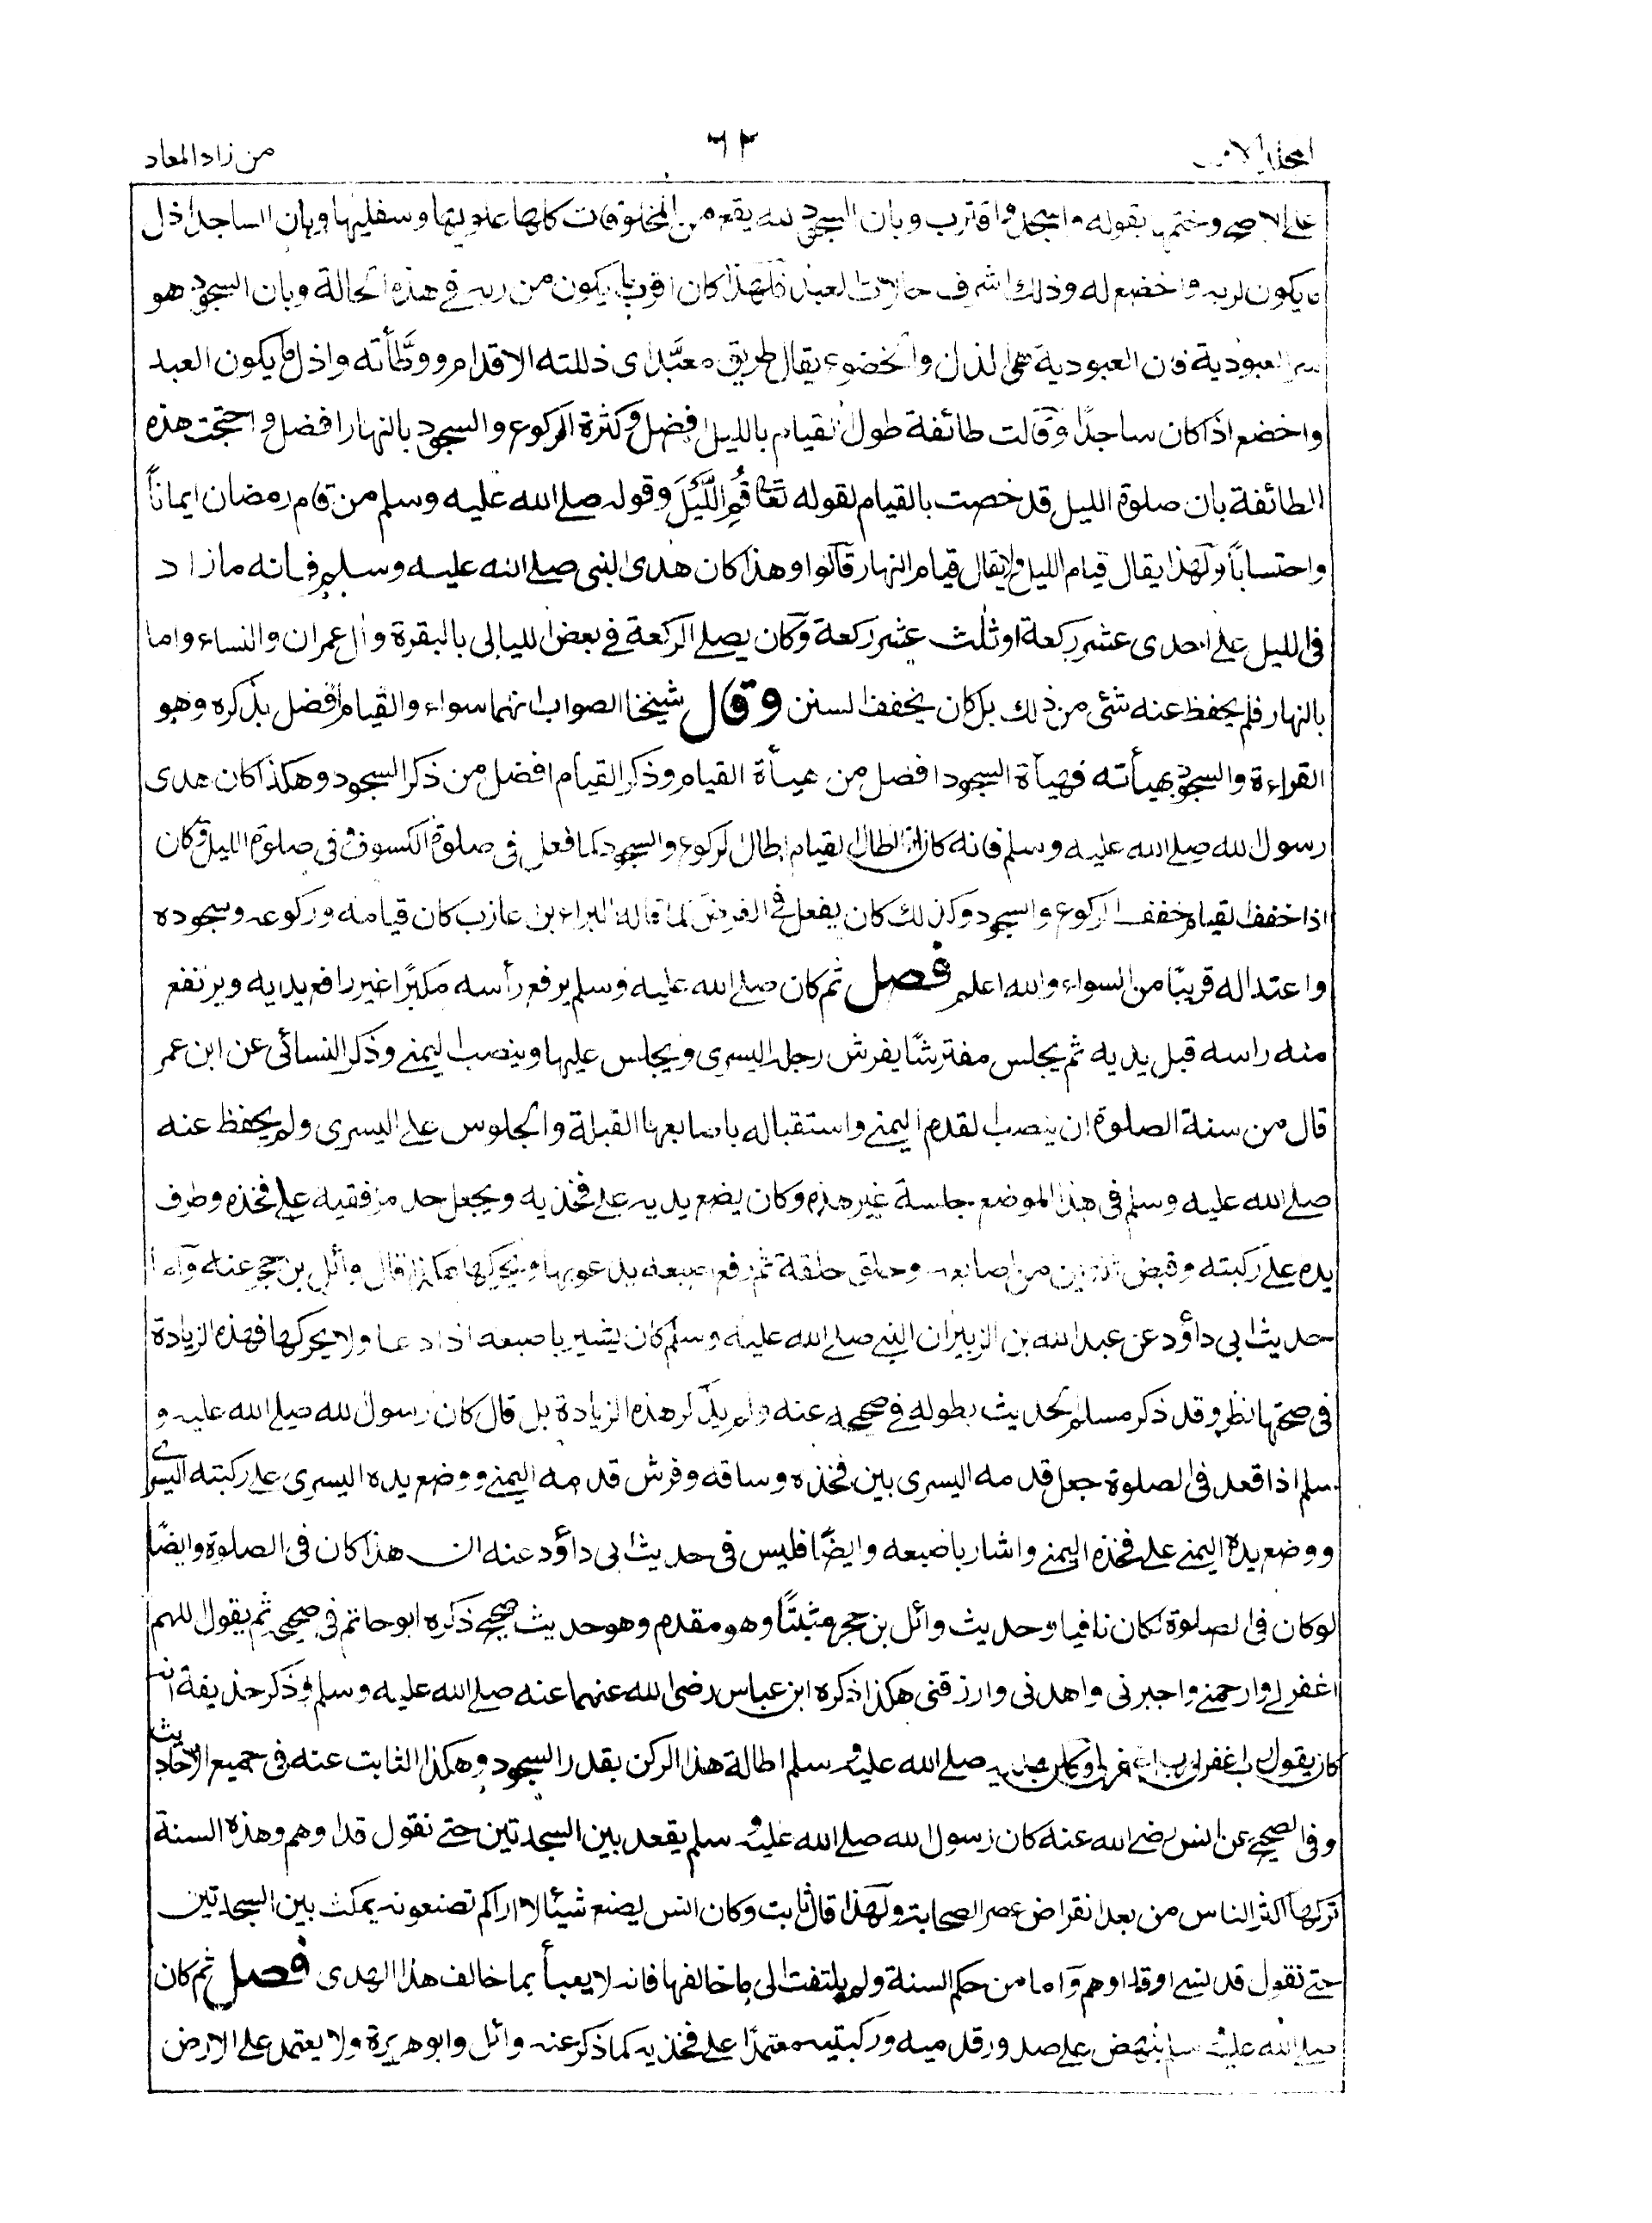 من زاد المعاد
٦٢
على الاصح وختمها بقوله واسجد واقترب وبان السجود لله يقع من المخلوقات كلها علويها وسفليها وبان الساجد اذل
ما يكون لربه واخضع له وذلك اشرف حالات العبد فلهذا كان اقرب ما يكون من ربه في هذه الحالة وبان السجود هو
سر العبودية فان العبودية هي الذل والخضوع يقال طريق معبَّد اى ذللته الاقدام ووطَّأته واذل ما يكون العبد
واخضع اذا كان ساجدًا وقالت طائفة طول القيام بالليل افضل وكثرة الركوع والسجود بالنهار افضل واحتجت هذه
الطائفة بان صلوة الليل قد خصت بالقيام لقوله تعالى قُمِ اللَّيْلَ وقوله صلى الله عليه وسلم من قام رمضان ايمانًا
واحتسابًا ولهذا يقال قيام الليل ولا يقال قيام النهار قالوا وهذا كان هدى النبى صلى الله عليه وسلم فانه ما زاد
فى الليل على احدى عشر ركعة او ثلث عشر ركعة وكان يصلى الركعة فى بعض الليالى بالبقرة وال عمران والنساء واما
بالنهار فلم يحفظ عنه شئ من ذلك بل كان يخفف السنن وقال شيخنا الصواب انهما سواء والقيام افضل بذكره وهو
القراءة والسجود بهيأته فهيأة السجود افضل من هيأة القيام وذكر القيام افضل من ذكر السجود وهكذا كان هدى
رسول الله صلى الله عليه وسلم فانه كان اذا اطال القيام اطال الركوع والسجود كما فعل فى صلوة الكسوف وفى صلوة الليل وكان
اذا خفف القيام خفف الركوع والسجود وكذلك كان يفعل فى الفرض كما قاله البراء بن عازب كان قيامه وركوعه وسجوده
واعتداله قريبًا من السواء والله اعلم فصل ثم كان صلى الله عليه وسلم يرفع رأسه مكبرًا غير رافع يديه ويرفع
منه راسه قبل يديه ثم يجلس مفترشًا يفرش رجله اليسرى ويجلس عليها وينصب اليمنى وذكر النسائى عن ابن عمر
قال من سنة الصلوة ان ينصب القدم اليمنى واستقباله باصابعها القبلة والجلوس على اليسرى ولم يحفظ عنه
صلى الله عليه وسلم فى هذا الموضع جلسة غير هذه وكان يضع يديه على فخذيه ويجعل حد مرفقيه على فخذه وطرف
يده على ركبته وقبض ثنتين من اصابعه وحلق حلقة ثم رفع اصبعه يدعو بها ويحركها هكذا قال وائل بن حجر عنه واما
حديث ابى داؤد عن عبد الله بن الزبير ان النبى صلى الله عليه وسلم كان يشير باصبعه اذا دعا ولا يحركها فهذه الزيادة
فى صحتها نظر وقد ذكر مسلم الحديث بطوله فى صحيحه عنه ولم يذكر هذه الزيادة بل قال كان رسول الله صلى الله عليه و
سلم اذا قعد فى الصلوة جعل قدمه اليسرى بين فخذه وساقه وفرش قدمه اليمنى ووضع يده اليسرى على ركبته اليسرى
ووضع يده اليمنى على فخذه اليمنى واشار باصبعه وايضًا فليس فى حديث ابى داؤد عنه ان هذا كان فى الصلوة وايضًا
لو كان فى الصلوة لكان نافيا وحديث وائل بن حجر مثبتًا وهو مقدم وهو حديث صحيح ذكره ابو حاتم فى صحيحه ثم يقول اللهم
اغفر لى وارحمنى واجبرنى واهدنى وارزقنى هكذا ذكره ابن عباس رضى الله عنهما عنه صلى الله عليه وسلم وذكر حذيفة انه
كان يقول رب اغفر لى رب اغفر لى وكان هديه صلى الله عليه وسلم اطالة هذا الركن بقدر السجود وهكذا الثابت عنه فى جميع الاحاديث
وفى الصحيح عن انس رضى الله عنه كان رسول الله صلى الله عليه وسلم يقعد بين السجدتين حتى نقول قد اوهم وهذه السنة
تركها اكثر الناس من بعد انقراض عصر الصحابة ولهذا قال ثابت وكان انس يصنع شيئا لا اراكم تصنعونه يمكث بين السجدتين
حتى نقول قد نسى او قد اوهم واما من حكم السنة ولم يلتفت الى ما خالفها فانه لا يعبأ بما خالف هذا الهدى فصل ثم كان
صلى الله عليه وسلم ينهض على صدور قدميه وركبتيه معتمدًا على فخذيه كما ذكر عنه وائل وابو هريرة ولا يعتمد على الارض